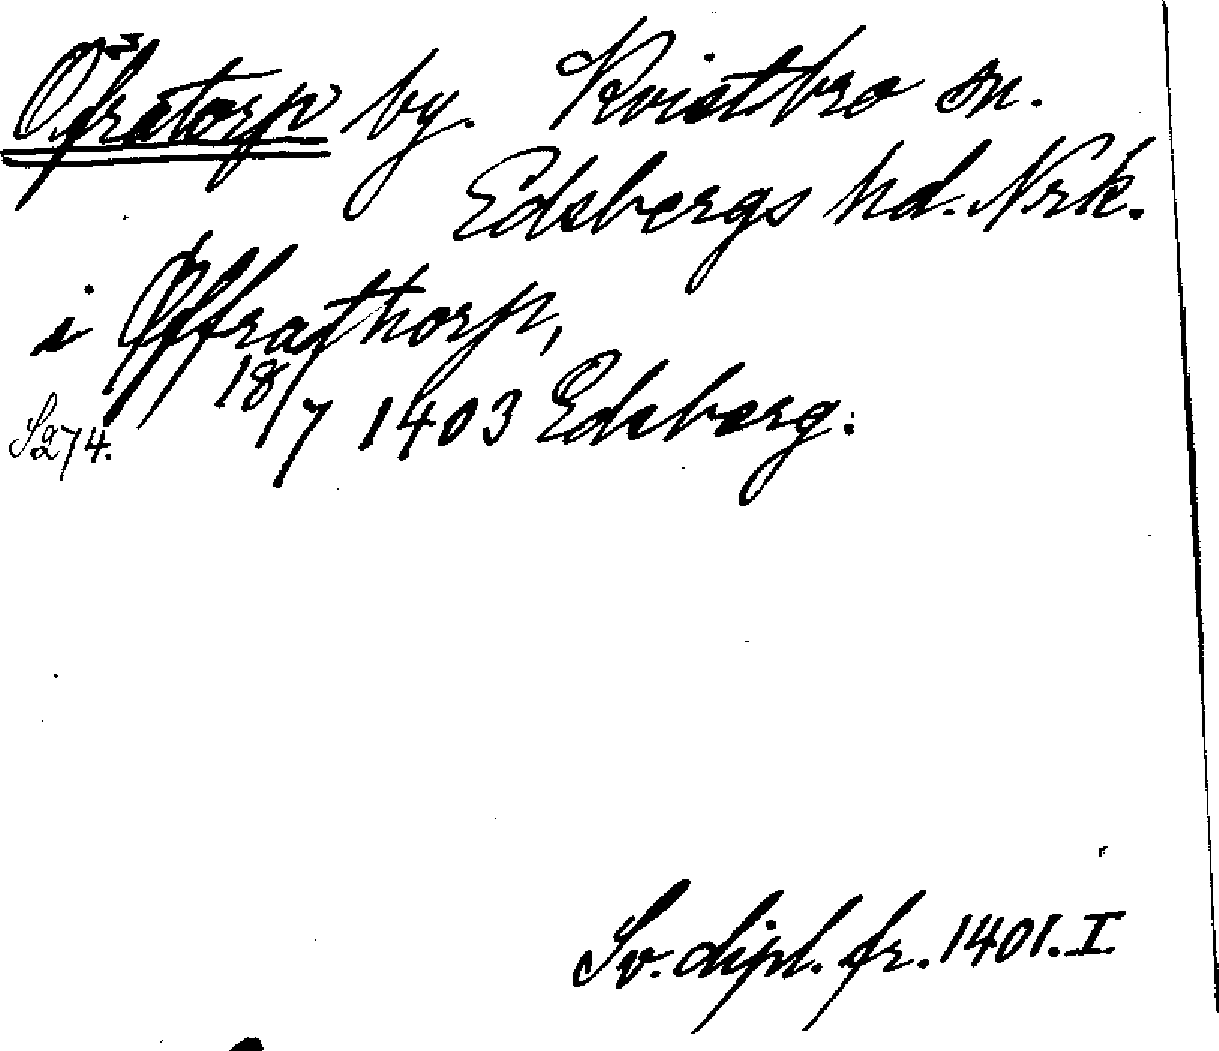 Öfratorp by. Kvistbro sn.
Edsbergs hd. Nrk.
i Øffrathorp,
S. 274. 18/7 1403 Edsberg.
Sv. dipl. fr. 1401. I